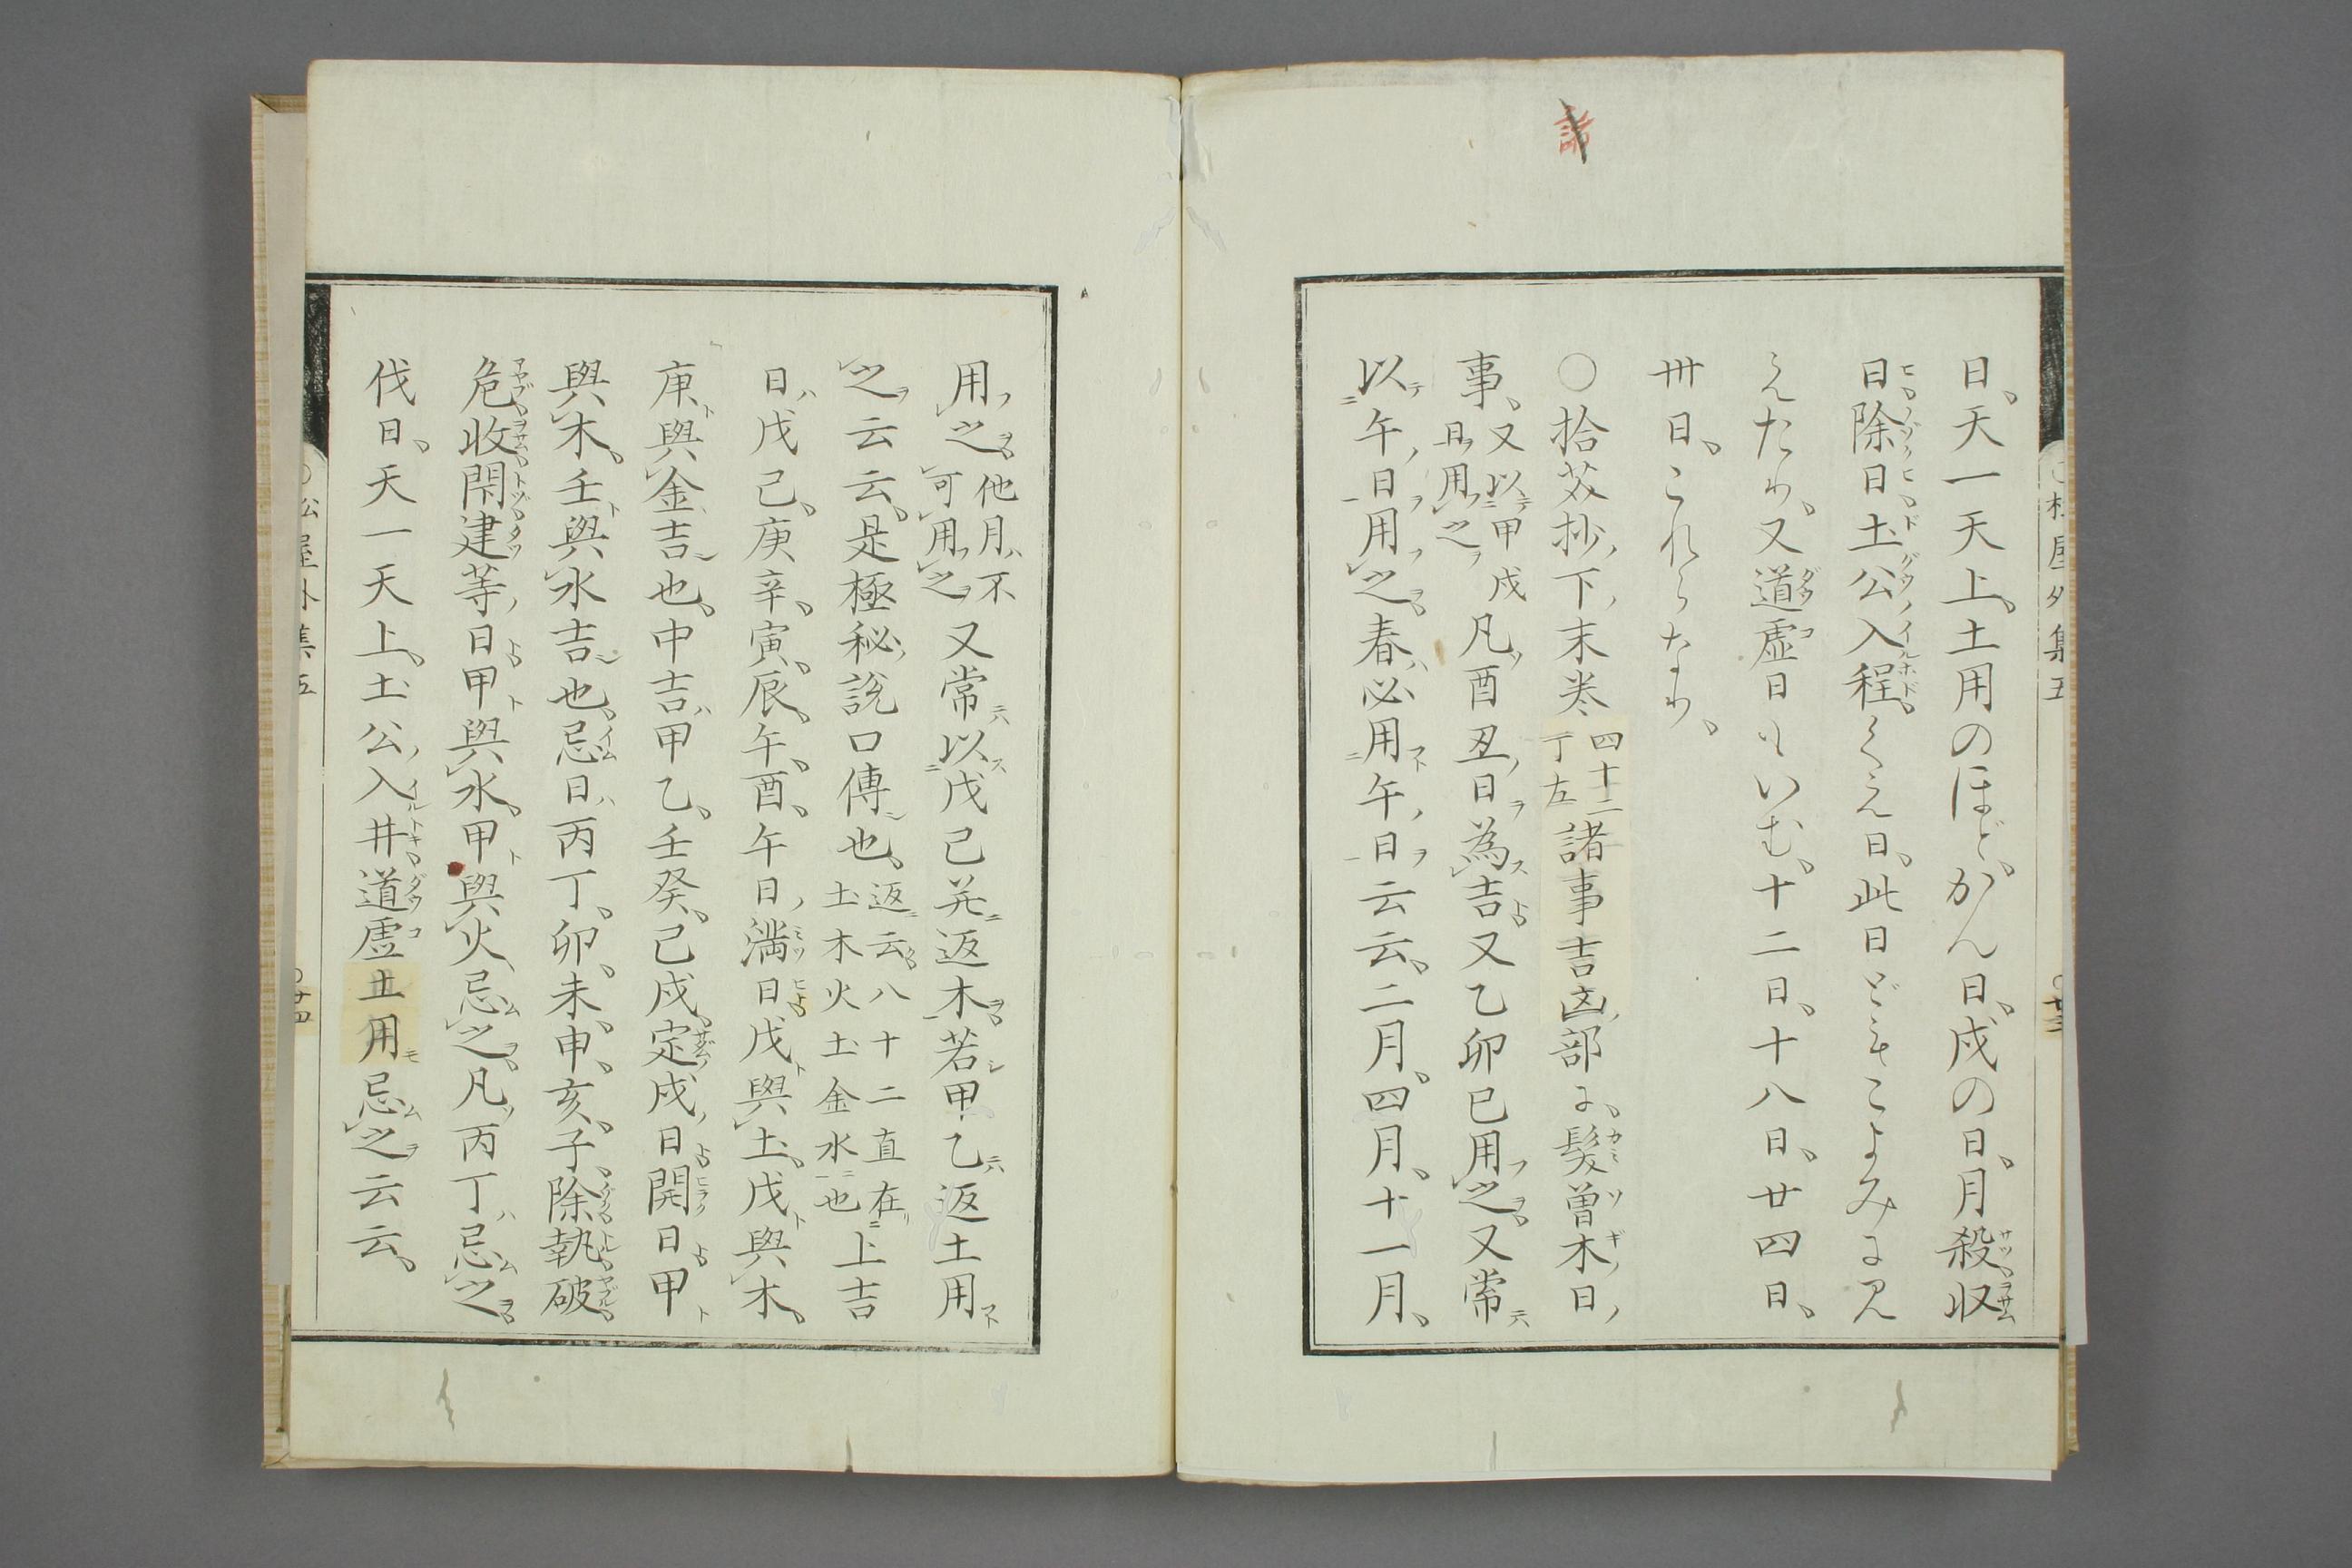 日、天一天上、土用のほど、かん日、戌の日、月殺収
日、除日、土公ノ入程、くゑ日、此日どもこよみにみ
えたり、又道虚日もいむ、十二日、十八日、廿四日、
卅日、これらなり、
○拾芥抄ノ下ノ末巻四十二丁左諸事吉凶ノ部に、髪曽木ノ日ノ
事、又以甲戌日用之凡酉丑ノ日ヲ為吉又乙卯巳用之又常
以午ノ日ヲ用之春ハ必用午ノ日ヲ云云、二月、四月、十一月、
用之他月ハ不可用之又常ニハ以戊己并返木若甲乙ニハ返土用
之云云、是極秘ノ説口傳也、返云八十二直在土木火土金水也上吉
日ハ戊己、庚辛、寅、辰、午、酉、午日ノ満日戊與土、戊與木、
庚與金吉也、中吉ハ甲乙、壬癸、己戌、定戌ノ日開日甲
與木、壬與水吉也、忌日ハ丙丁、卯、未、申、亥、子、除執破
危收閇建等ノ日甲與水、甲與火、忌之、凡ソ丙丁ハ忌之、
伐日、天一天上、土公ノ入井、道虚土用モ忌之云云、
松屋外集五
○廿三
○松屋外集五
○廿四